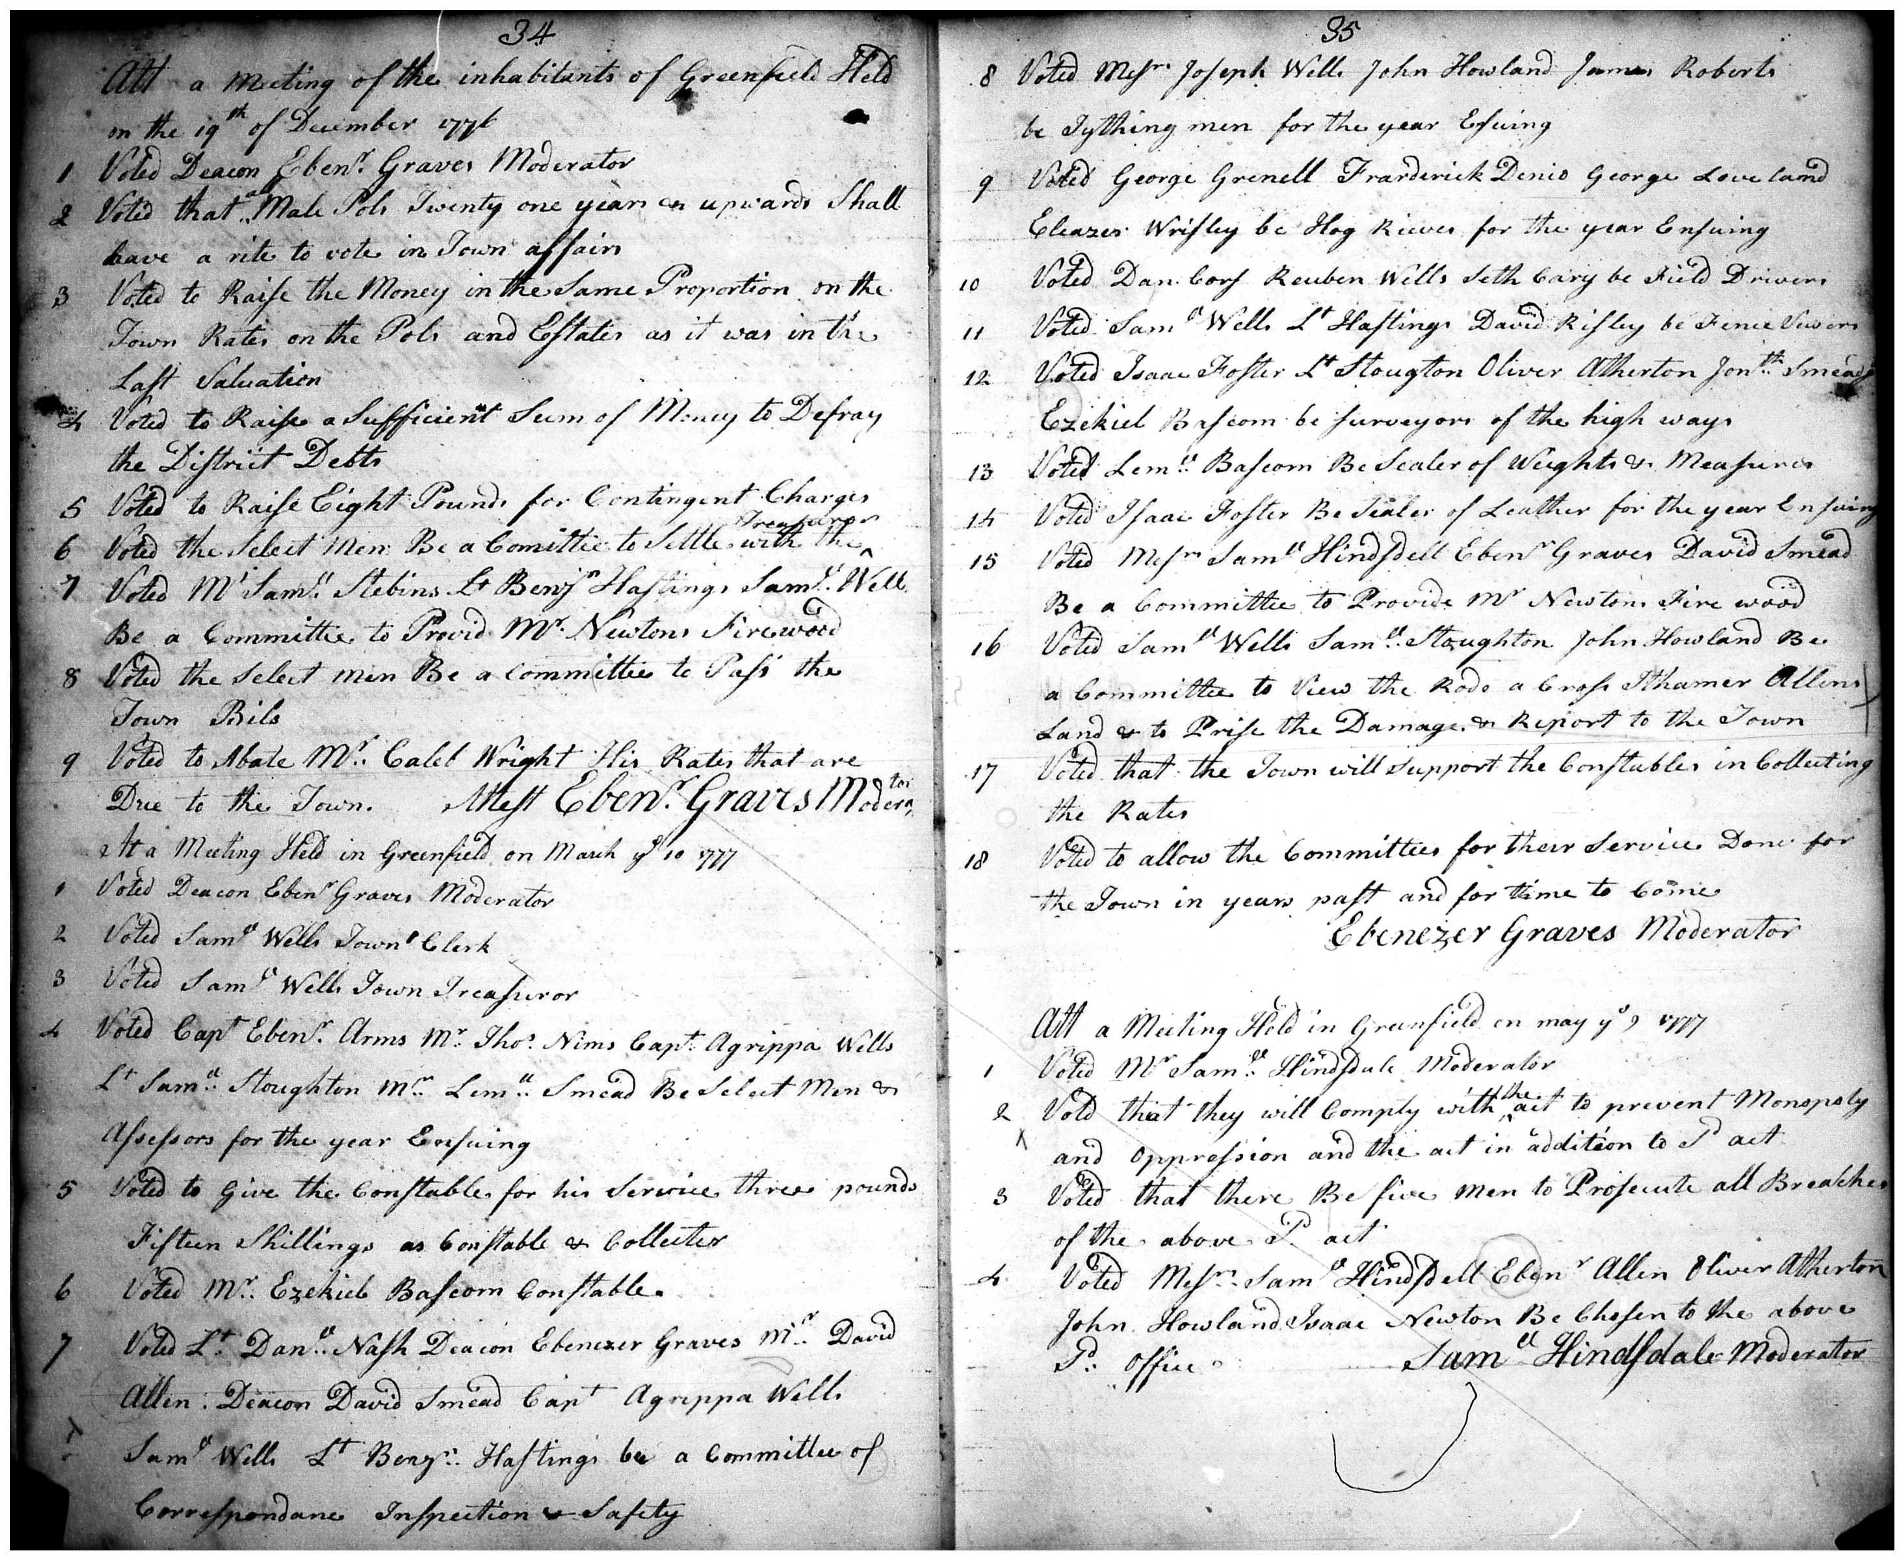 34
Att a Meeting of the inhabitants of Greenfield Held
on the 19th of December 1776
1 Voted Deacon Ebenr. Graves Moderator
2 Voted that a Male Pols Twenty one years & upwards Shall
have a rite to vote in Town affairs
3 Voted to Raise the Money in the Same Proportion on the
Town Rates on the Pols and Estates as it was in the
Last Valuation
4 Voted to Raise a Sufficient Sum of Money to Defray
the District Debts
5 Voted to Raise Eight Pounds for Contingent Charges
6 Voted the Select Men Be a Comittee to Settle with the Treasuror
7 Voted Mr Samll Stebins Lt Benjn Hastings Samll. Well
Be a Committee to Provid Mr. Newtons Firewood
8 Voted the Select men Be a Committee to Pass the
Town Bils
9 Voted to Abate Mr. Caleb Wright His Rates that are
Due to the Town. Attest Ebenr. Graves Moderator
At a Meeting Held in Greenfield on March ye 10 1777
1 Voted Deacon Ebenr Graves Moderator
2 Voted Samll Wells Town Clerk
3 Voted Samll Wells Town Treasuror
4 Voted Capt Ebenr. Arms Mr. Thos. Nims Capt. Agrippa Wells
Lt Samll. Stoughton Mr. Lemll. Smead Be Select Men &
Assessors for the year Ensuing
5 Voted to Give the Constable for his Service three pounds
Fifteen Shillings as Constable & Collecter
6 Voted Mr. Ezekiel Bascom Constable
7 Voted Lt. Danll. Nash Deacon Ebenezer Graves Mr. David
Allen Deacon David Smead Capt Agrippa Wells
Samll Wells Lt Benjn. Hastings be a Committee of
Correspondane Inspection & Safety
35
8 Voted Messrs Joseph Wells John Howland James Roberts
be Tything men for the year Ensuing
9 Voted George Grenell Frarderick Denio George Loveland
Eleazer Wrisley be Hog Rieves for the year Ensuing
10 Voted Dan Cors Reuben Wells Seth Cary be Field Drivers
11 Voted Samll Wells Lt Hastings David Risley be Fence Vewers
12 Voted Isaac Foster Lt Stougton Oliver Atherton Jonth. Smead
Ezekiel Bascom be surveyors of the high ways
13 Voted Lemll Bascom Be Sealer of Weights & Measures
14 Voted Isaac Foster Be Sealer of Leather for the year Ensuing
15 Voted Messrs Samll Hindsdell Ebenr Graves David Smead
Be a Committee to Provide Mr Newtons Fire wood
16 Voted Samll Wells Samll. Stoughton John Howland Be
a Committee to View the Rode a Cross Ithamer Allens
Land & to Prise the Damage & Report to the Town
17 Voted that the Town will support the Constables in Collecting
the Rates
18 Voted to allow the Committees for their Service Done for
the Town in years past and for time to Come
Ebenezer Graves Moderator
Att a Meeting Held in Greenfield on may ye 9 1777
1 Voted Mr Samll. Hindsdale Moderator
2 Votd that they will Comply with the act to prevent Monopoly
and oppression and the act in addition to Sd act
3 Voted that there Be five men to Prosecute all Breaches
of the above Sd. act
4 Voted Messrs. Samll Hindsdell Ebenr Allen Oliver Atherton
John Howland Isaac Newton Be Chosen to the above
Sd. office
Samll Hindsdale Moderator